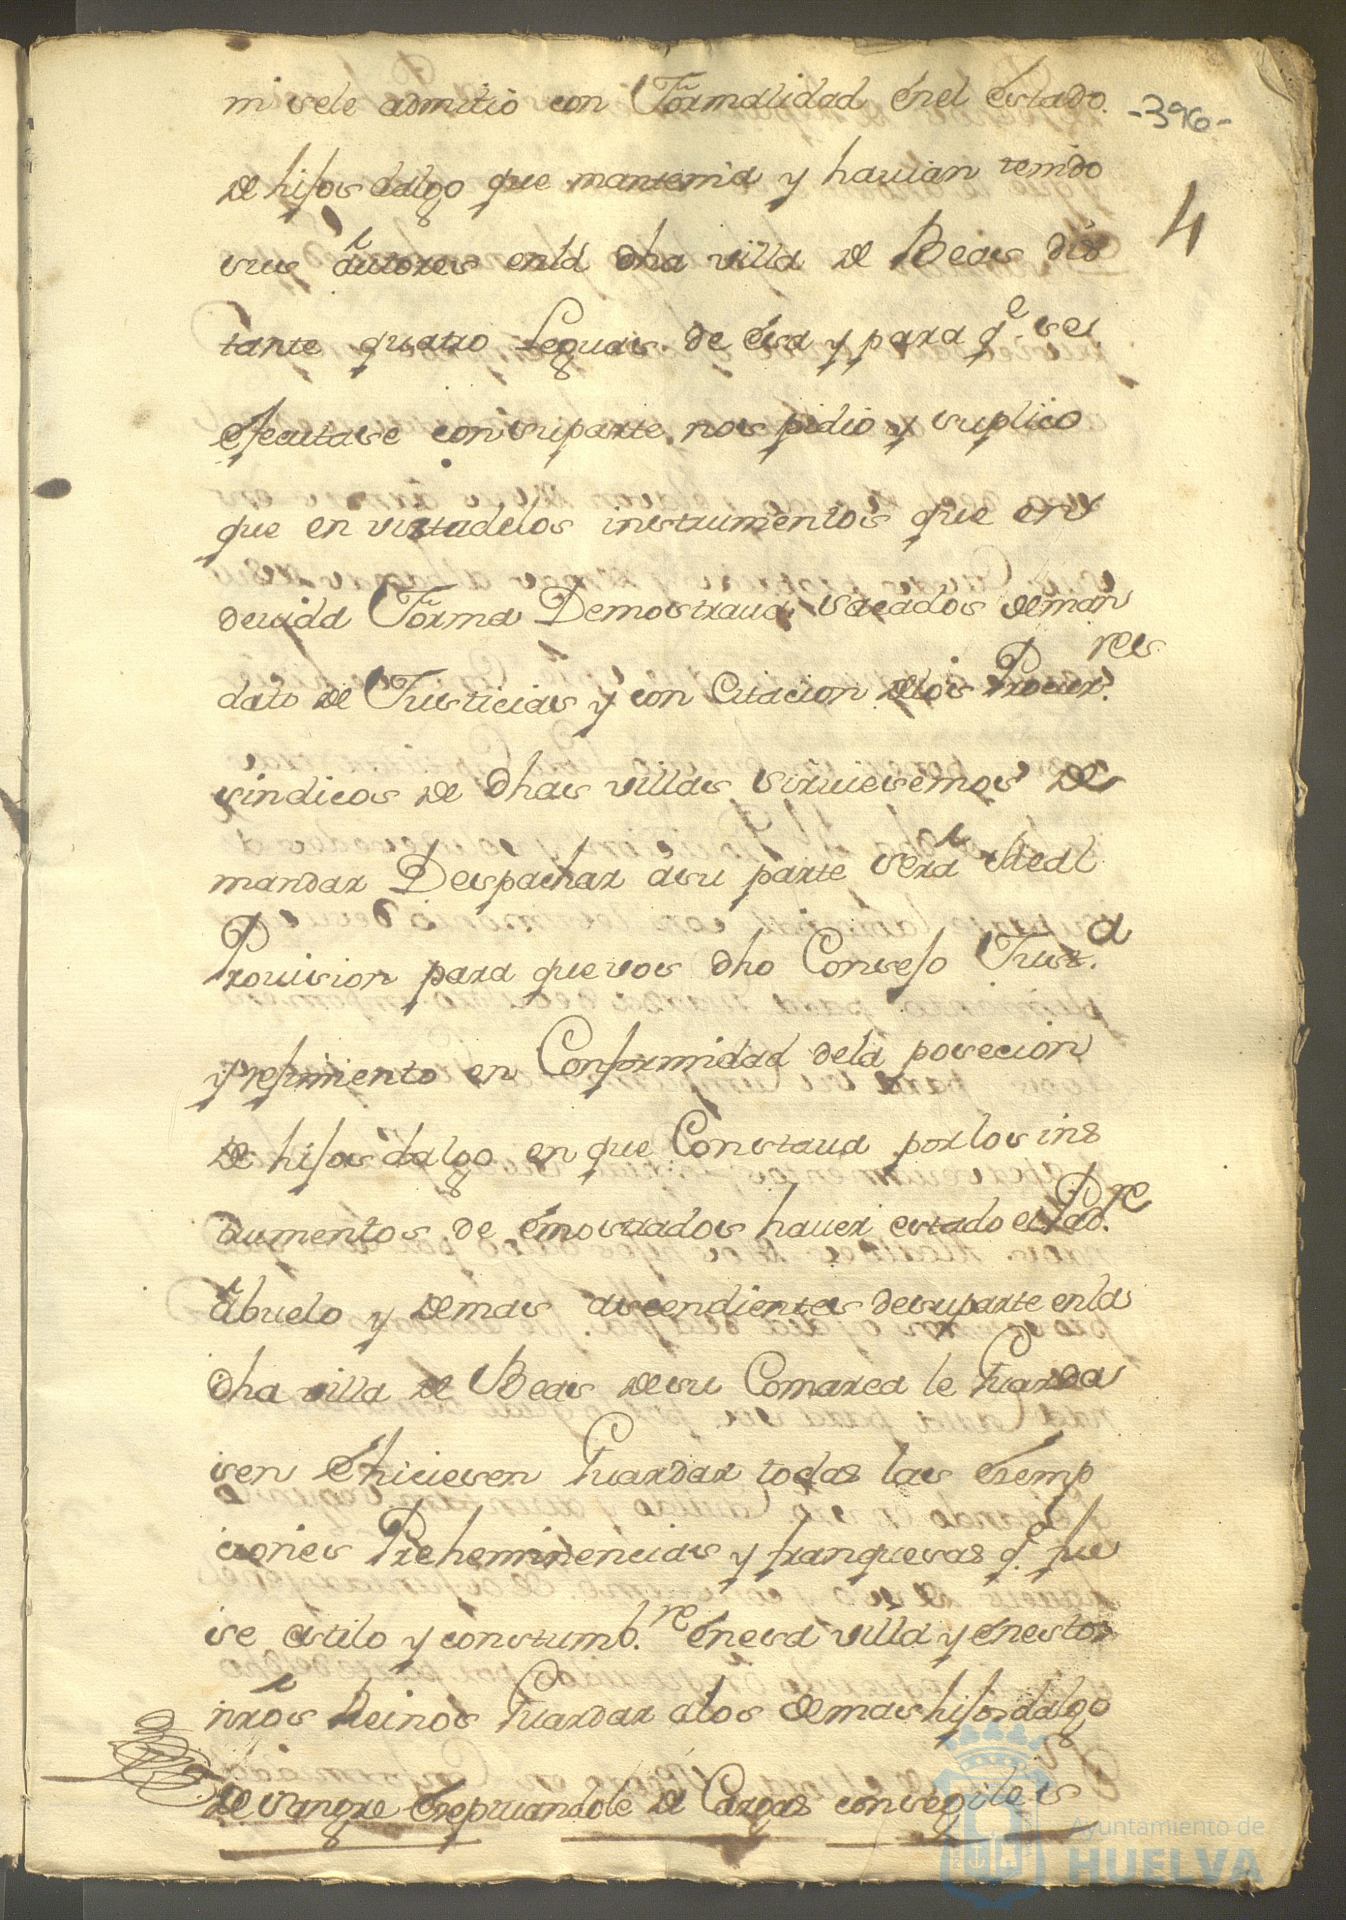 mi sele admitio con Formalidad enel estado. -396-
de hijos dalgo que mantenia y hauian tenido 4
sus autores enla dha villa de Beas dis
tante quatro Leguas de esa y para q.e se
efecutase con su parte nos pidio y suplico
que en virtud delos instrumentos que en
devida Forma Demostraua sacados deman
dato de Justicias y con Citacion delos Procur.res
sindicos de dhas villas siruiesemos de
mandar Despachar asu parte sera Real
Prouision para que vos dho Consejo Just.a
y rejimiento en Conformidad dela posecion
de hijos dalgo en que Constaua por los ins
trumentos de emostrados hauer estado el Pad.re
Abuelo y demas ascendientes desu parte enla
dha villa de Beas desu Comarca le Guarda
sen e hiciesen Guardar todas las esemp
ciones Preheminencias y franquesas q.e fue
se estilo y constumb.re enesa villa y enestos
nros Reinos Guardar alos demas hijos dalgo
de sangre esepuandole de Cargas consegiles
Ayuntamiento de
HUELVA